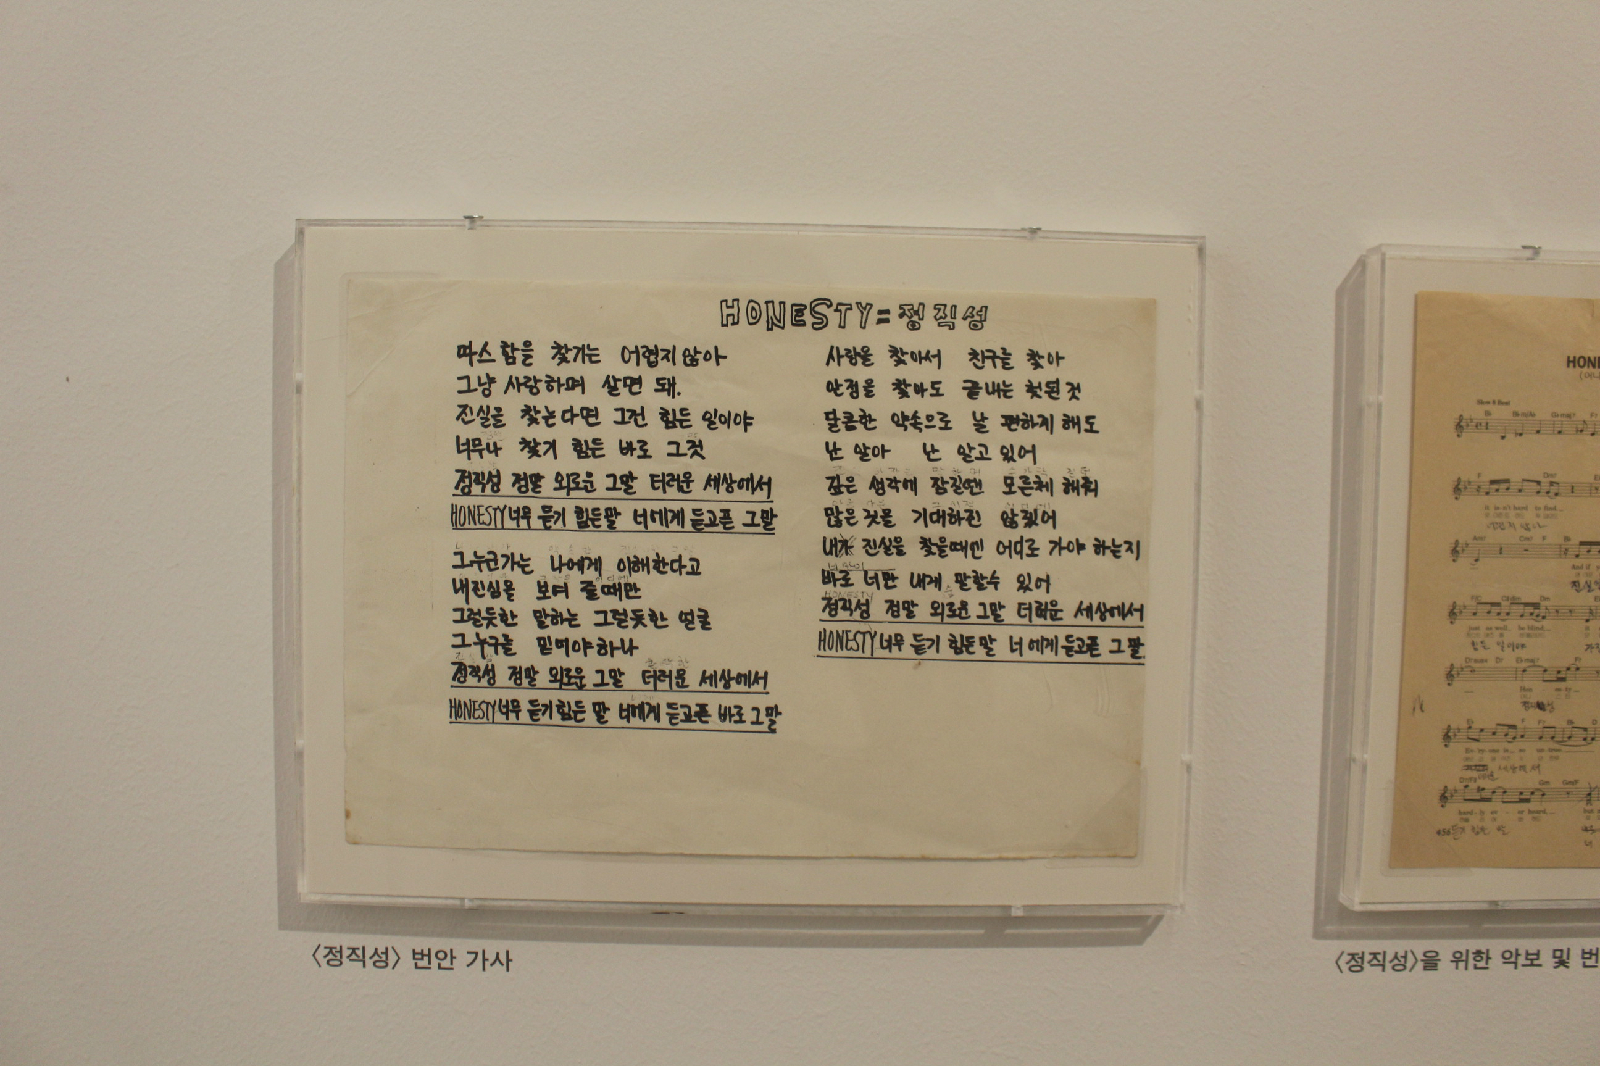 HONESTY=정직성
따스함을 찾기는 어렵지않아
그냥 사랑하며 살면 돼.
진실을 찾는다면 그건 힘든 일이야
너무나 찾기 힘든 바로 그것
정직성 정말 외로운 그말 더러운 세상에서
HONESTY 너무 듣기 힘든말 너에게 듣고픈 그말
그누군가는 나에게 이해한다고
내진심을 보여 줄때만
그럴듯한 말하는 그럴듯한 얼굴
그누구를 믿어야하나
정직성 정말 외로운 그말 더러운 세상에서
HONESTY 너무 듣기힘든 말 너에게 듣고픈 바로 그말
사람을 찾아서 친구를 찾아
안정을 찾아도 끝내는 헛된것
달콤한 약속으로 날 편하게 해도
난 알아 난 알고 있어
깊은 생각에 잠길땐 모른체 해줘
많은것을 기대하진 않겠어
내가 진실을 찾을때면 어디로 가야 하는지
바로 너만 내게 말할수 있어
정직성 정말 외로운 그말 더러운 세상에서
HONESTY 너무 듣기 힘든말 너에게듣고픈 그말
〈정직성〉 번안 가사
HON
Slow 8 Beat
〈정직성〉을 위한 악보 및 번